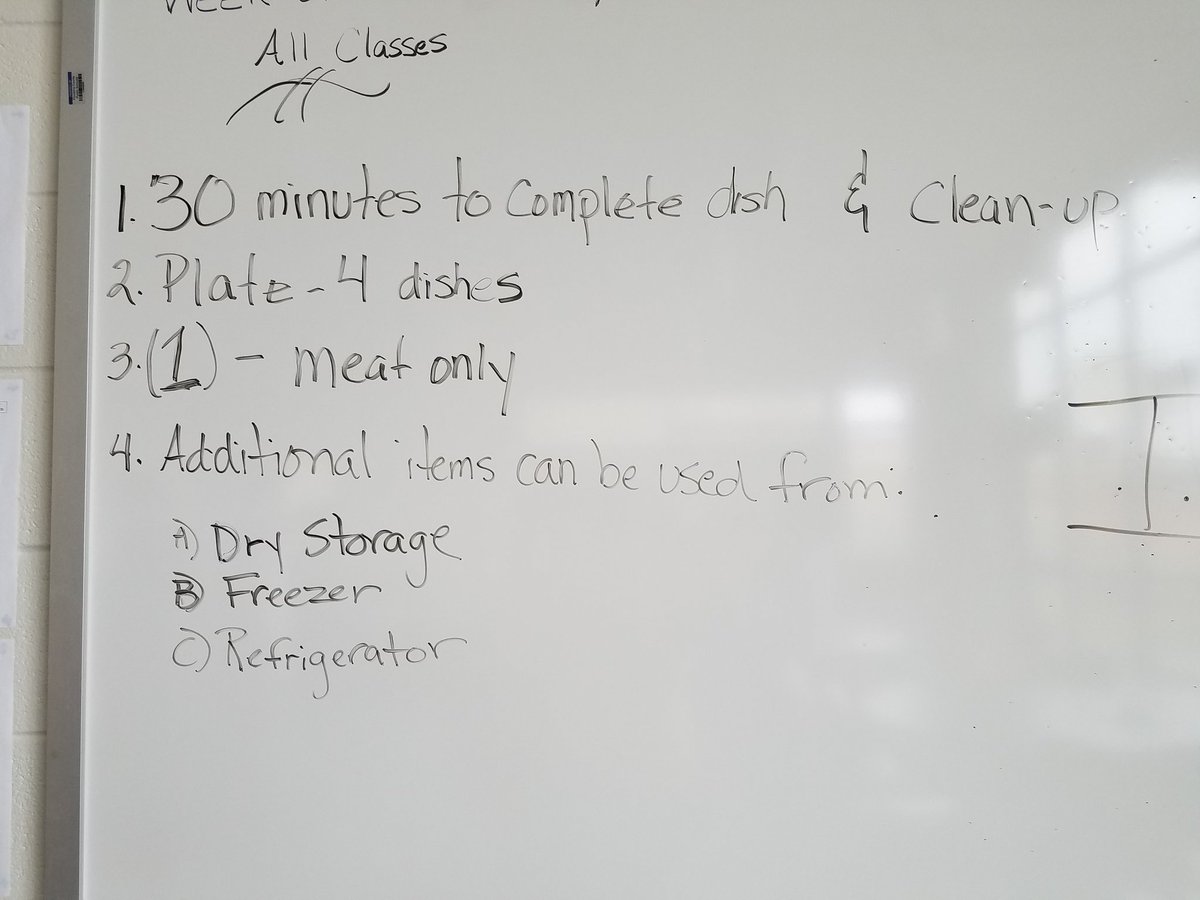 All Classes
1. 30 minutes to Complete dish & Clean-up
2. Plate - 4 dishes
3. (1) - meat only
4. Additional items can be used from:
A) Dry Storage
B) Freezer
C) Refrigerator